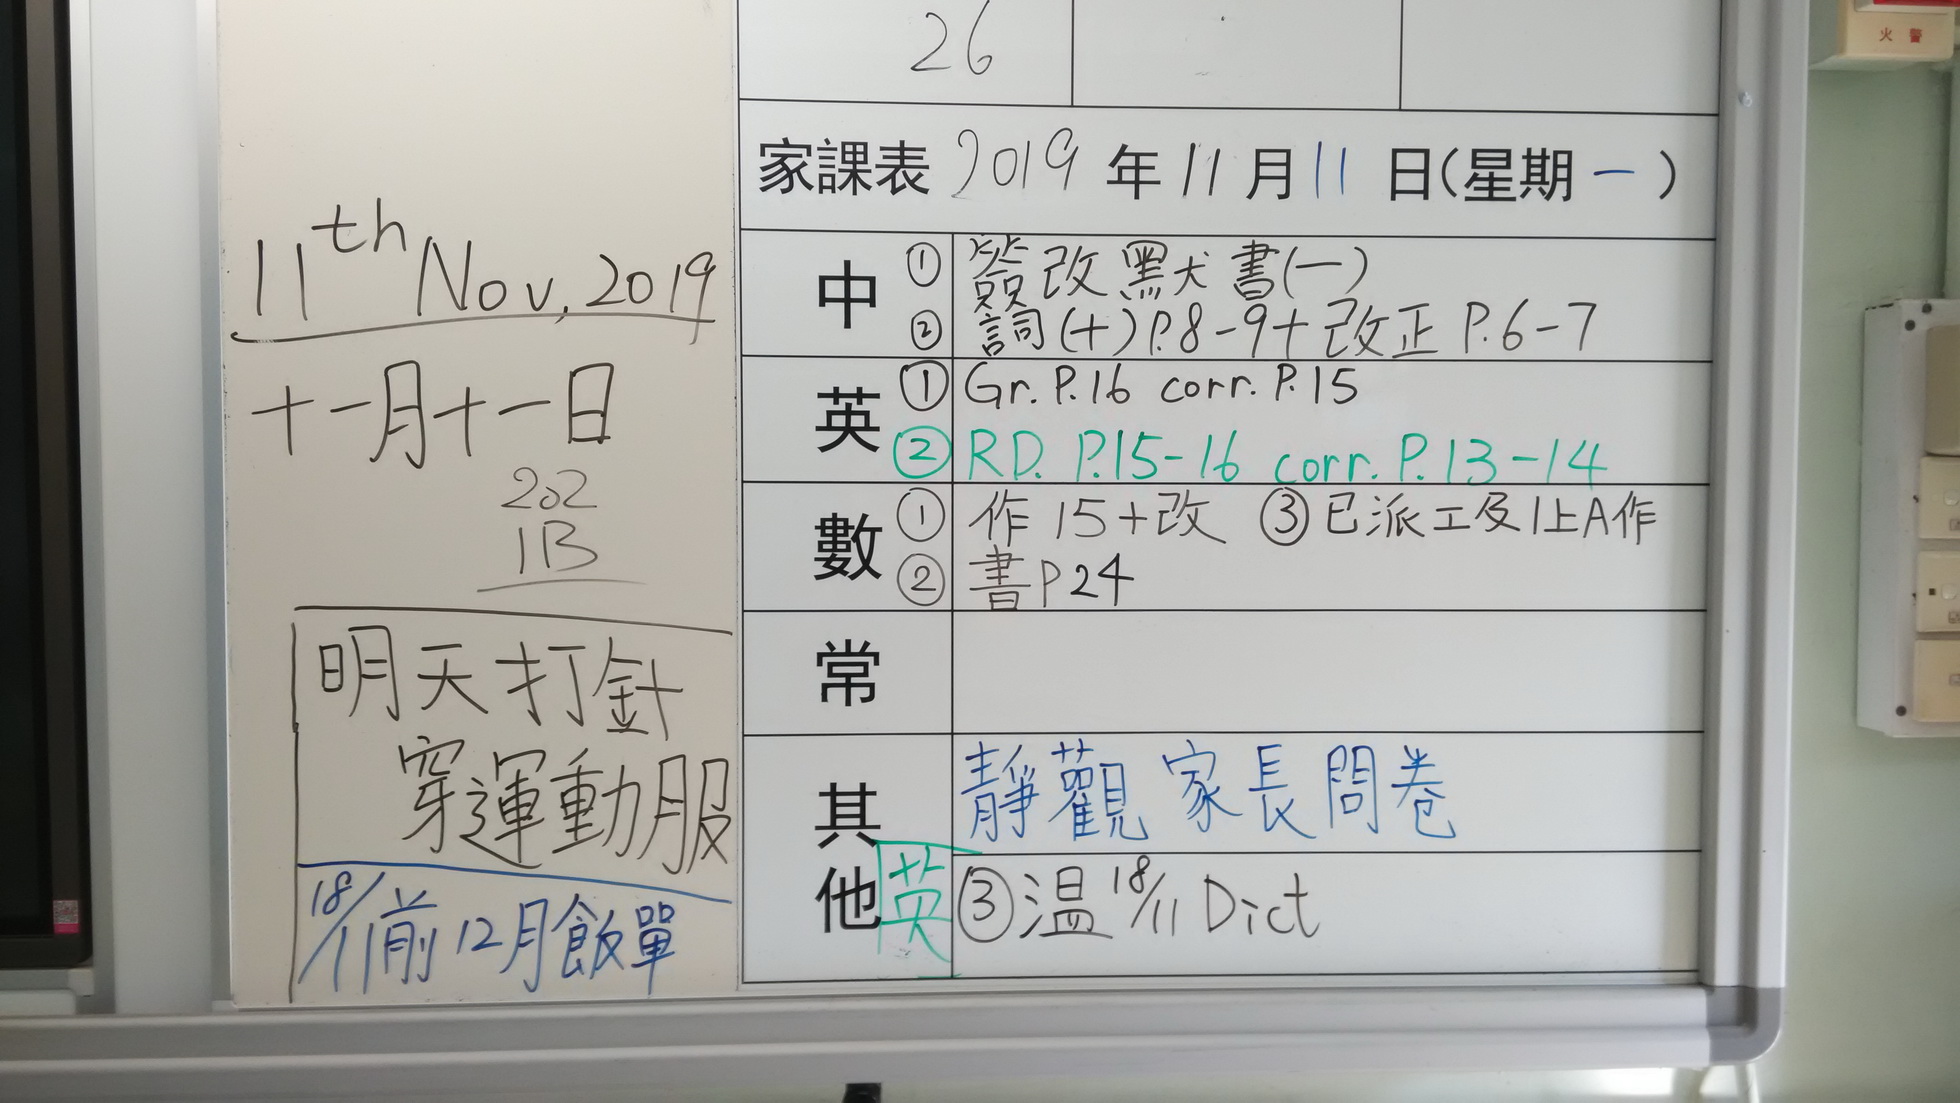 11th Nov, 2019
十一月十一日
202
1B
明天打針
穿運動服
18/11前12月飯單
26
家課表 2019年11月11日(星期一)
中 ① 簽改默書(一)
② 詞(十)P.8-9+改正 P.6-7
英 ① Gr. P.16 corr. P.15
② RD. P.15-16 corr. P.13-14
數 ① 作15+改 ③ 已派工及1上A作
② 書P24
常
其他 靜觀家長問卷
英 ③ 温 18/11 Dict
火警